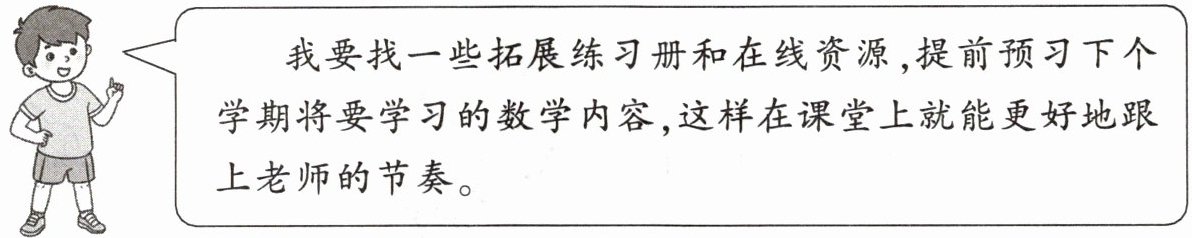 我要找一些拓展练习册和在线资源,提前预习下个
学期将要学习的数学内容,这样在课堂上就能更好地跟
上老师的节奏。